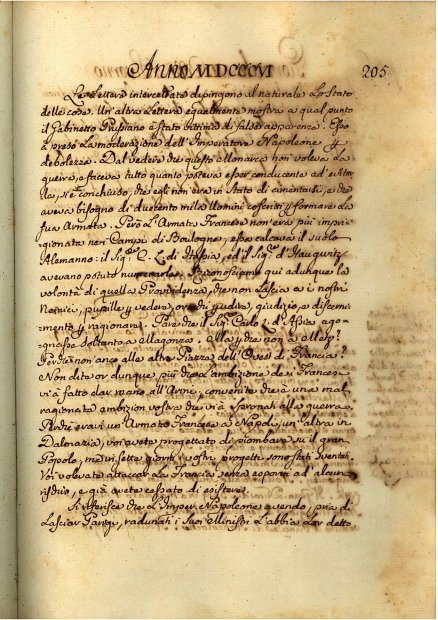 Anno MDCCCVI
205
Le Lettere intercettate dipingono al naturale lo stato
delle cose. Un'altra Lettera egualmente mostra a qual punto
il Gabinetto Prussiano è stato vittima di false apparenze. Esso
à preso la moderazione dell'Imperatore Napoleone p
debolezza. Dal vedere che questo Monarca non voleva la
guerra, e faceva tutto quanto poteva esser conducente ad evitar
la, ne conchiuso, che egli non era in stato di cimentarsi, e che
aveva bisogno di duecento mila Uomini coscritti p formare la
sua Armata. Però l'Armata Francese non era più impri
gionata nei Campi di Boulogne; essa calcava il suolo
Alemanno: il Sig. C. L. di Hassia, ed il Sig. d'Haugwitz
avevano potuto numerarla. Riconosciamo qui adunque la
volontà di quella Providenza, che non lascia a i nostri
Nemici, pupille p vedere, orecchi p udire, giudizio, e discerni
mento p ragionare. Pare che il Sig. Carlo L. d'Assia ago
gnasse soltanto a Magonza. Ma p che non a Metz?
Perchè non anco alle altre Piazze dell'Ovest di Francia?
Non dite or dunque più che l'ambizione de i Francesi
vi à fatto dar mano all'Armi, convenite che è una mal
ragionata ambizion vostra che vi à spronati alla guerra.
Perchè eravi un'Armata Francese a Napoli, un'altra in
Dalmatia, voi avete progettato di piombare su il gran
Popolo, ma in sette giorni i vostri progetti sono stati sventati.
Voi volevate attaccar la Francia senza esporvi ad alcun
rischio, e già avete cessato di esistere.
Si riferisce che l'Imper. Napoleone avendo, pria di
lasciar Parigi, radunati i suoi Ministri l'abbia lor detto.